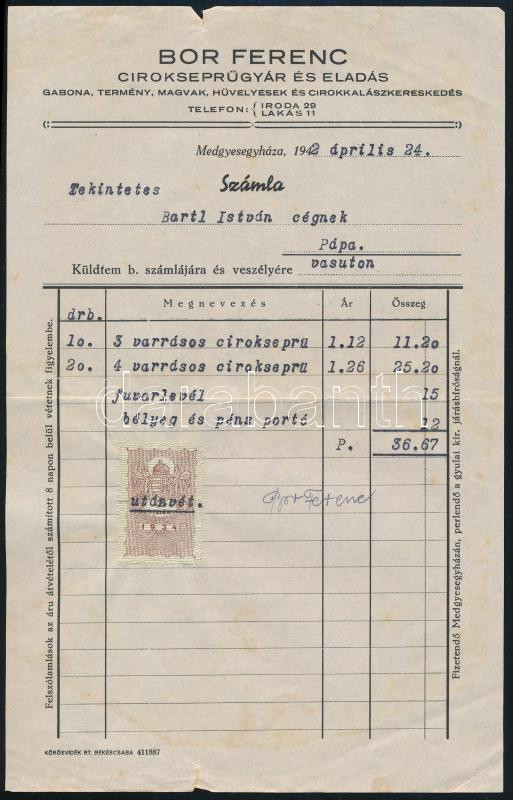 BOR FERENC
CIROKSEPRŰGYÁR ÉS ELADÁS
GABONA, TERMÉNY, MAGVAK, HÜVELYESEK ÉS CIROKKALÁSZKERESKEDÉS
TELEFON: { IRODA 29
LAKÁS 11
Medgyesegyháza, 1942 április 24.
Tekintetes Számla
Bartl István cégnek
Pápa.
Küldtem b. számlájára és veszélyére vasuton
drb. Megnevezés Ár Összeg
1o. 3 varrásos cirokseprü 1.12 11.2o
2o. 4 varrásos cirokseprü 1.26 25.2o
fuvarlevél 15
bélyeg és portó 12
P. 36.67
utánvét.
1934
Bor Ferenc
Felszólamlások az áru átvételétől számított 8 napon belül vétetnek figyelembe.
Fizetendő Medgyesegyházán, perlendő a gyulai kir. járásbíróságnál.
KÖRÖSVIDÉK RT. BÉKÉSCSABA 411887
darabanth